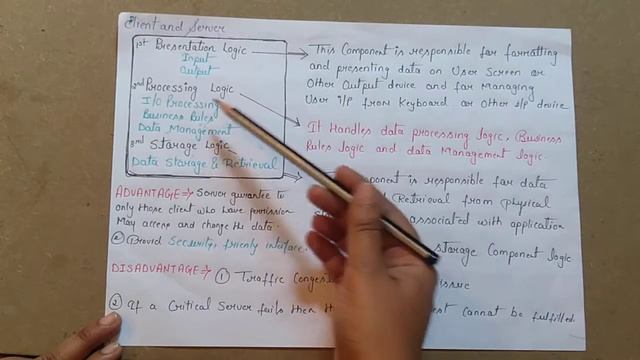 Client and Server
1st Presentation Logic
Input
Output
2nd Processing Logic
I/O Processing
Business Rules
Data Management
3rd Storage Logic
Data Storage & Retrieval
This Component is responsible for farmatting
and presenting data on User Screen or
Other Output device and for Managing
User i/p from Keyboard or Other i/p device
It Handles data processing logic, Business
Rules logic and data Management logic
Component is responsible for data
and Retrieval from physical
associated with application
storage Component logic
ADVANTAGE⇒ Server gurantee to
only those client who have permission
May access and change the data.
② Provid Security, friendly interface.
DISADVANTAGE⇒ ① Traffic Conges issue
② If a Critical Server fails then cannot be fulfilled.